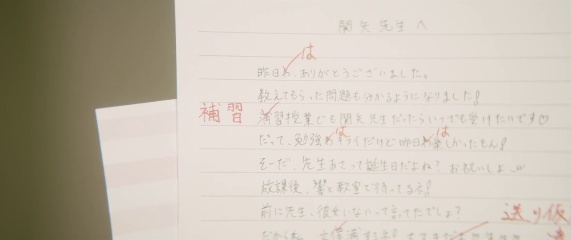 関矢先生へ
は
昨日わ、ありがとうございました。
教えてもらった問題も分かるようになりました!
補習
補習授業でも関矢先生だったらいつでも受けたいです♡
は は
だって、勉強わキライだけど昨日わ楽しかったもん!
そーだ、先生あさって誕生日だよね? お祝いしよ
放課後、教室で待ってるネ!
前に先生、彼女いないって言ってたでしょ?
送り仮